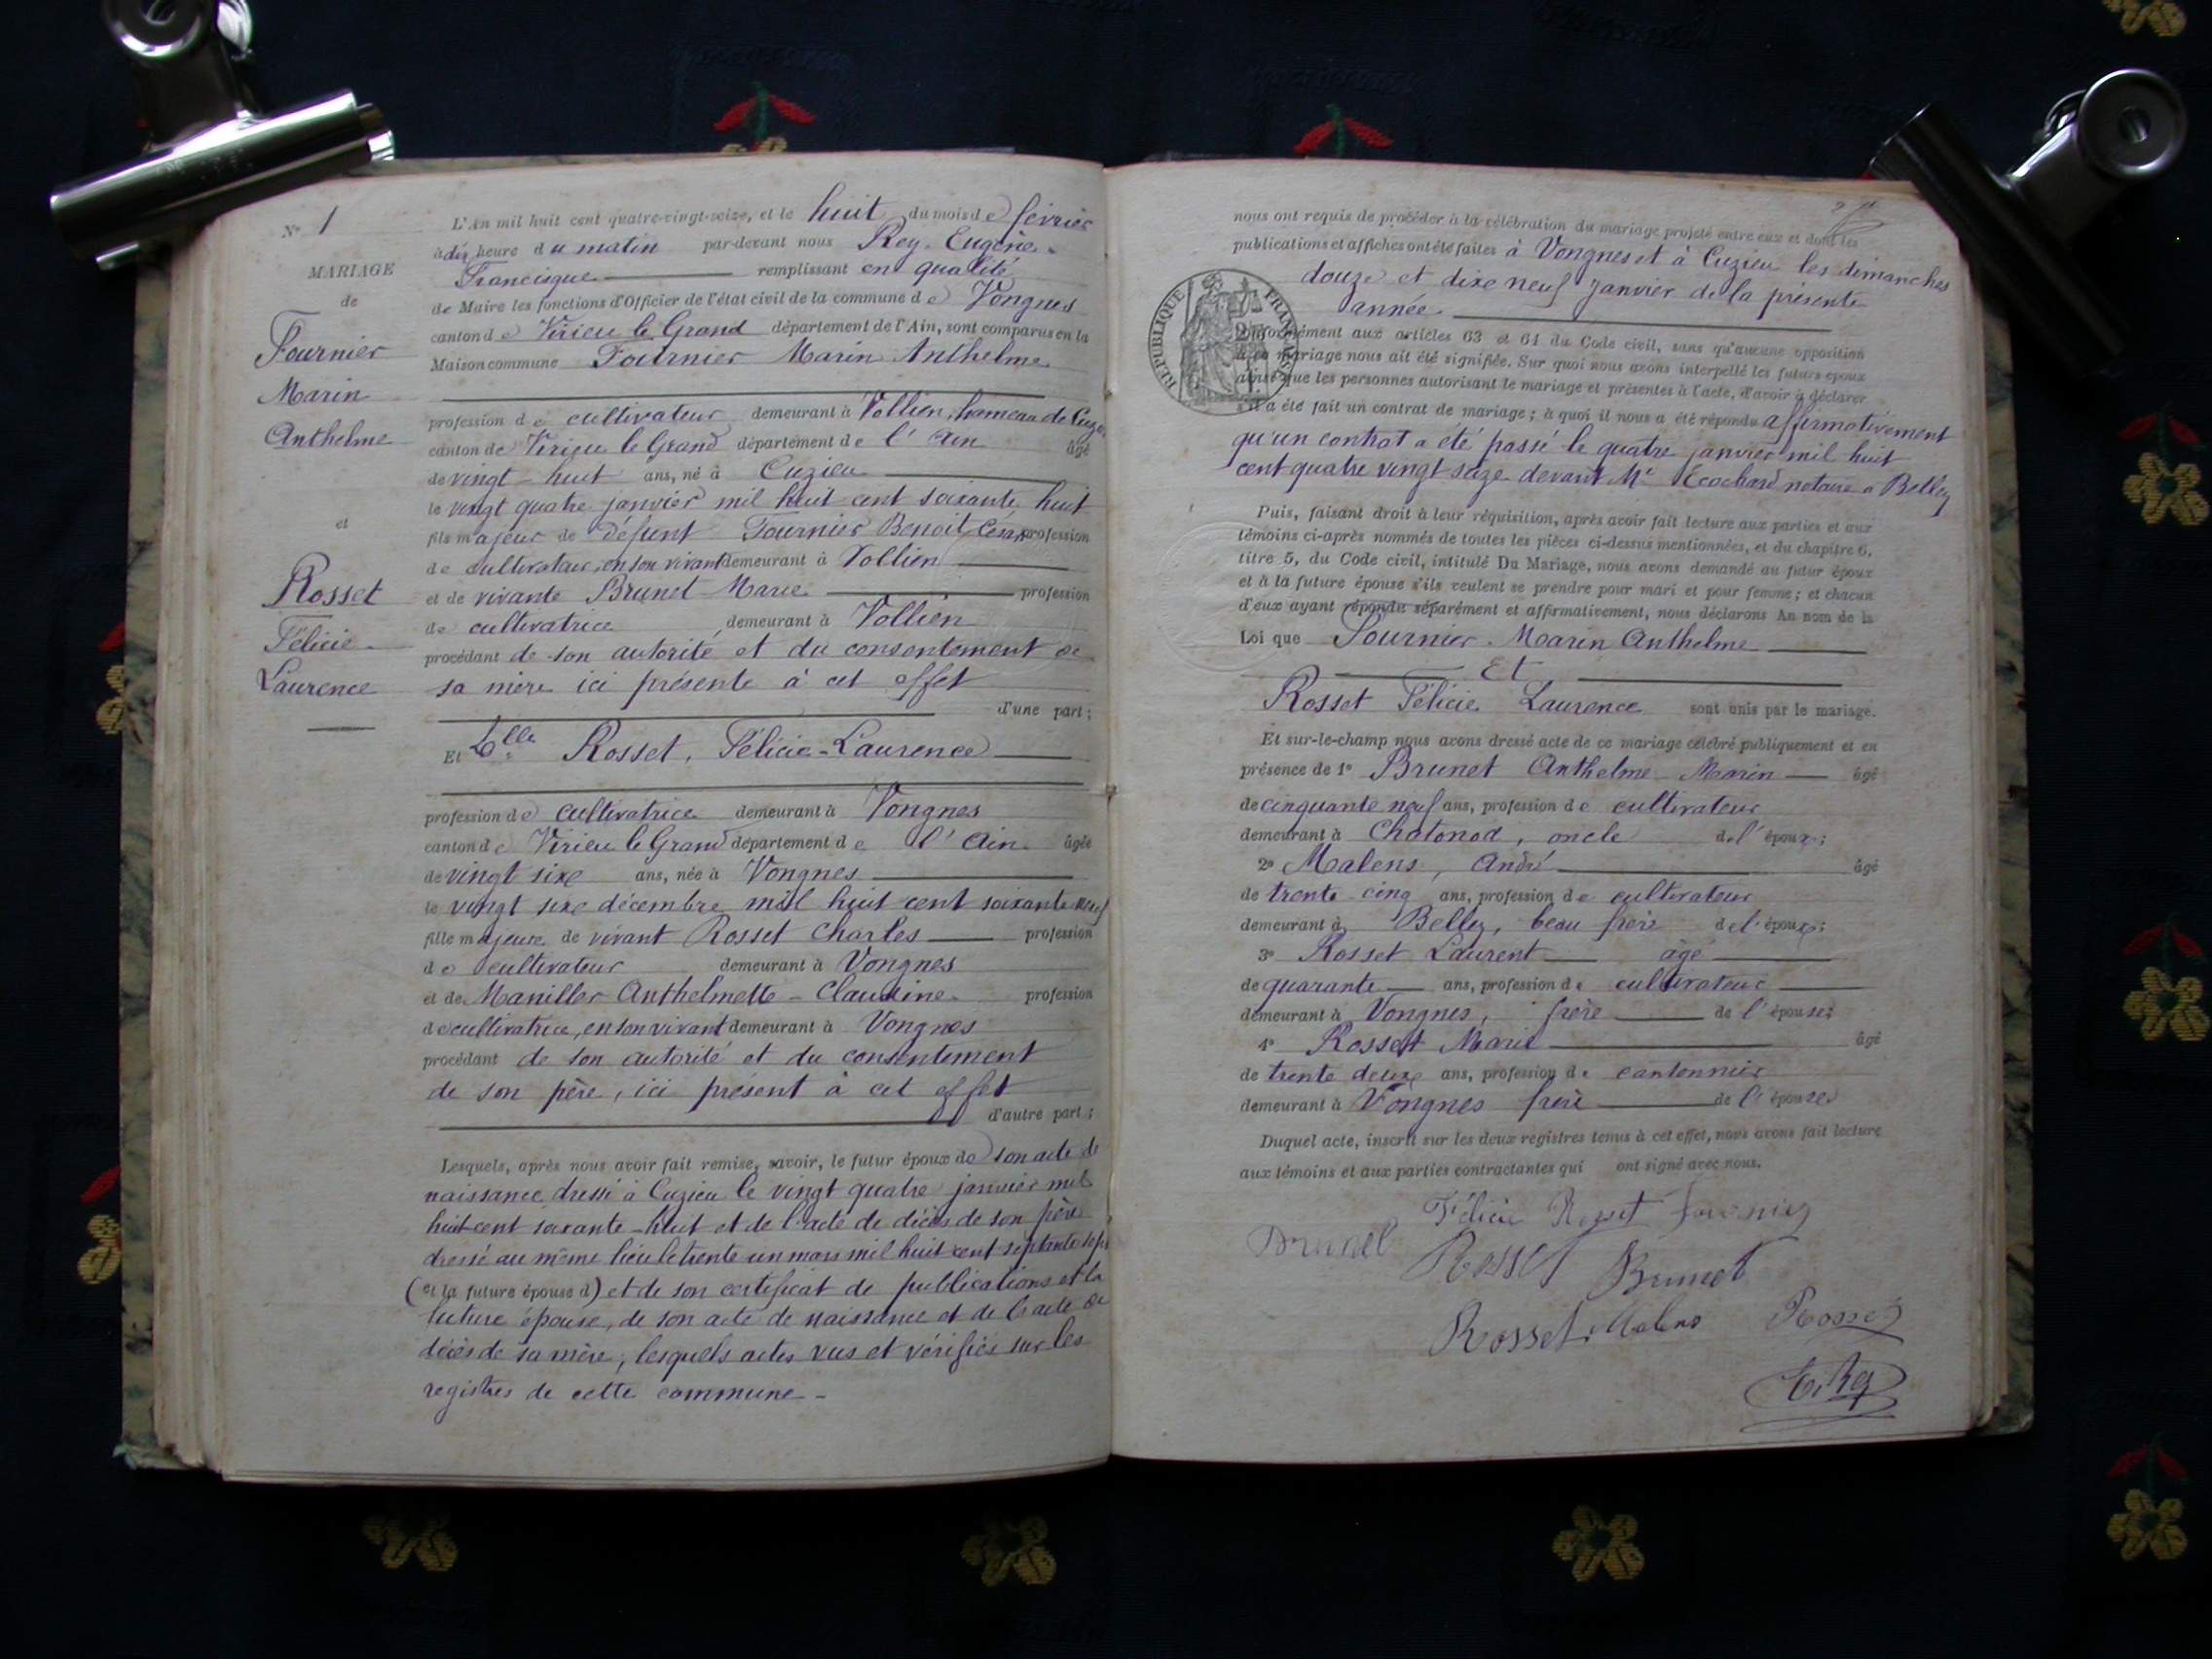 N° 1
MARIAGE
de
Fournier
Marin
Anthelme
et
Rosset
Félicie
Laurence
L'An mil huit cent quatre-vingt-seize, et le huit du mois de février
à dix heure du matin par-devant nous Rey Eugène
Francisque remplissant en qualité
de Maire les fonctions d'Officier de l'état civil de la commune de Vongnes
canton de Virieu le Grand département de l'Ain, sont comparus en la
Maison commune Fournier Marin Anthelme
profession de cultivateur demeurant à Vollien, hameau de
canton de Virieu le Grand département de l'Ain âgé
de vingt-huit ans, né à Cuzieu
le vingt quatre janvier mil huit cent soixante huit
fils majeur de défunt Fournier Benoit César profession
de cultivateur, en son vivant demeurant à Vollien
et de vivante Brunet Marie profession
de cultivatrice demeurant à Vollien
procédant de son autorité et du consentement de
sa mère ici présente à cet effet
d'une part;
Et Dlle Rosset, Félicie-Laurence
profession de cultivatrice demeurant à Vongnes
canton de Virieu le Grand département de l'Ain âgée
de vingt sixe ans, née à Vongnes
le vingt sixe décembre mil huit cent soixante neuf
fille majeure de vivant Rosset Charles profession
de cultivateur demeurant à Vongnes
et de Maniller Anthelmette-Claudine profession
de cultivatrice, en son vivant demeurant à Vongnes
procédant de son autorité et du consentement
de son père, ici présent à cet effet
d'autre part;
Lesquels, après nous avoir fait remise, savoir, le futur époux de son acte de
naissance dressé à Cuzieu le vingt quatre janvier mil
huit cent soixante-huit et de l'acte de décès de son père
dressé au même lieu le trente un mars mil huit cent septante sept
(et la future épouse d) et de son certificat de publications et la
future épouse, de son acte de naissance et de l'acte de
décès de sa mère, lesquels actes vus et vérifiés sur les
registres de cette commune -
nous ont requis de procéder à la célébration du mariage projeté entre eux et dont les
publications et affiches ont été faites à Vongnes et à Cuzieu les dimanches
douze et dixe neuf janvier de la présente
année
RÉPUBLIQUE FRANÇAISE
conformément aux articles 63 et 64 du Code civil, sans qu'aucune opposition
à ce mariage nous ait été signifiée. Sur quoi nous avons interpellé les futurs époux
ainsi que les personnes autorisant le mariage et présentes à l'acte, d'avoir à déclarer
s'il a été fait un contrat de mariage; à quoi il nous a été répondu affirmativement
qu'un contrat a été passé le quatre janvier mil huit
cent quatre vingt seize devant Me Ecochard notaire à Belley
Puis, faisant droit à leur réquisition, après avoir fait lecture aux parties et aux
témoins ci-après nommés de toutes les pièces ci-dessus mentionnées, et du chapitre 6,
titre 5, du Code civil, intitulé Du Mariage, nous avons demandé au futur époux
et à la future épouse s'ils veulent se prendre pour mari et pour femme; et chacun
d'eux ayant répondu séparément et affirmativement, nous déclarons Au nom de la
Loi que Fournier Marin Anthelme
Et
Rosset Félicie Laurence sont unis par le mariage.
Et sur-le-champ nous avons dressé acte de ce mariage célébré publiquement et en
présence de 1° Brunet Anthelme Marin âgé
de cinquante neuf ans, profession de cultivateur
demeurant à Chatonod, oncle de l'époux;
2° Malens, André âgé
de trente-cinq ans, profession de cultivateur
demeurant à Belley, beau frère de l'époux;
3° Rosset Laurent âgé
de quarante ans, profession de cultivateur
demeurant à Vongnes, frère de l'épouse;
4° Rosset Marie âgé
de trente deuxe ans, profession de cantonnier
demeurant à Vongnes frère de l'épouse
Duquel acte, inscrit sur les deux registres tenus à cet effet, nous avons fait lecture
aux témoins et aux parties contractantes qui ont signé avec nous.
Félicie Rosset Fournier
Brunet Rosset Brunet
Rosset Malens Rosset
E. Rey